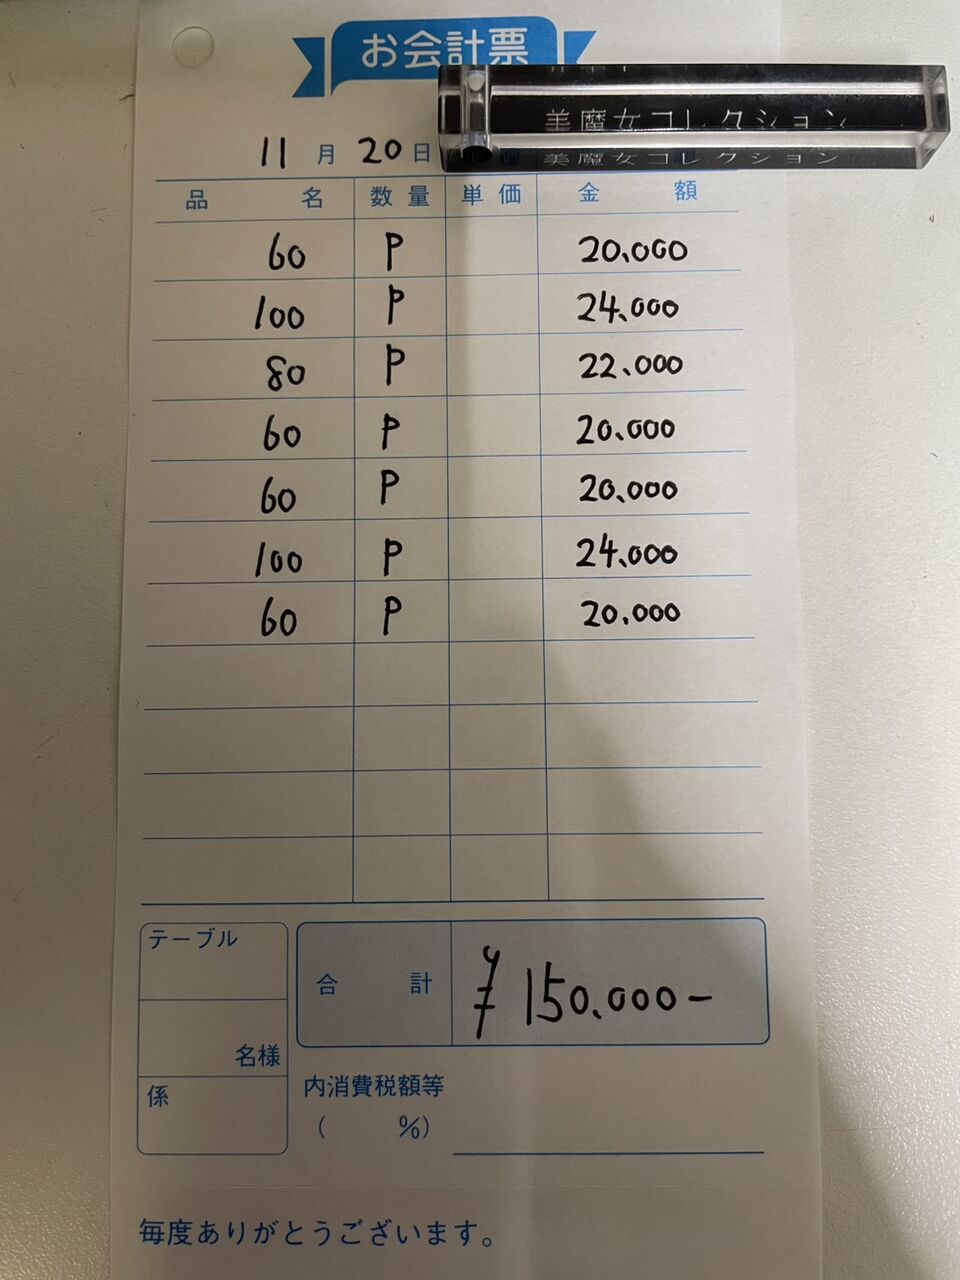 お会計票
美魔女コレクション
美魔女コレクション
11月20日
品名 数量 単価 金額
60 P 20,000
100 P 24,000
80 P 22,000
60 P 20,000
60 P 20,000
100 P 24,000
60 P 20,000
テーブル
名様
係
合計 ¥150,000-
内消費税額等
( %)
毎度ありがとうございます。